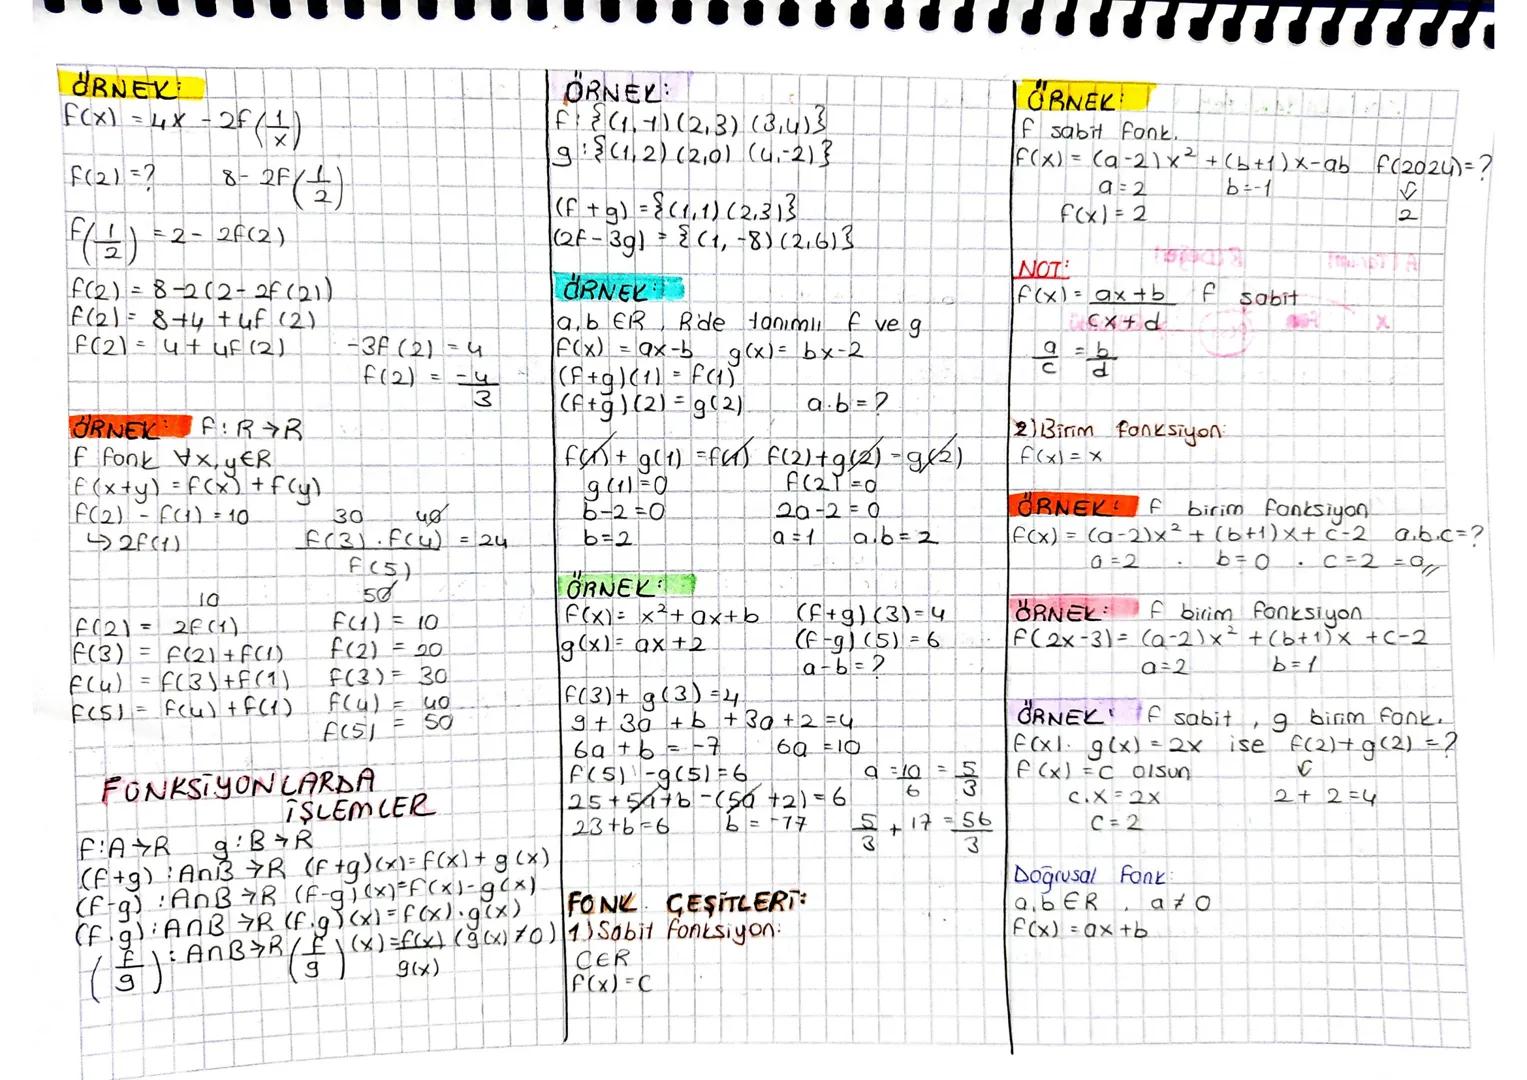 ÖRNEK:
f(x) = 4x - 2f(1/x)
f(2) = ? 8 - 2f(1/2)
f(1/2) = 2 - 2f(2)
f(2) = 8-2(2-2f(2))
f(2) = 8+4 +4f(2)
f(2) = 4+4f(2) -3f(2) = 4
f(2) = -4/3
ÖRNEK: f:R→R
f fonk ∀x,y∈R
f(x+y) = f(x)+f(y)
f(2) - f(1) = 10 30 40
↳ 2f(1) f(3).f(4)/f(5) = 24
50
10
f(2) = 2f(1) f(1) = 10
f(3) = f(2)+f(1) f(2) = 20
f(4) = f(3)+f(1) f(3) = 30
f(5) = f(4)+f(1) f(4) = 40
f(5) = 50
FONKSİYONLARDA
İŞLEMLER
f:A→R g:B→R
(f+g):A∩B→R (f+g)(x)=f(x)+g(x)
(f-g):A∩B→R (f-g)(x)=f(x)-g(x)
(f.g):A∩B→R (f.g)(x)=f(x).g(x)
(f/g):A∩B→R (f/g)(x)=f(x)/g(x) (g(x)≠0)
ÖRNEK:
f:{(1,-1)(2,3)(3,4)}
g:{(1,2)(2,0)(4,-2)}
(f+g)={(1,1)(2,3)}
(2f-3g)={(1,-8)(2,6)}
ÖRNEK:
a,b ∈R, R'de tanımlı f ve g
f(x) = ax-b g(x) = bx-2
(f+g)(1) = f(1)
(f+g)(2) = g(2) a.b=?
f(1)+g(1)=f(1) f(2)+g(2)=g(2)
g(1)=0 f(2)=0
b-2=0 2a-2=0
b=2 a=1 a.b=2
ÖRNEK:
f(x)= x²+ax+b (f+g)(3)=4
g(x)= ax+2 (f-g)(5)=6
a-b=?
f(3)+g(3)=4
9+3a+b+3a+2=4
6a+b=-7 6a=10
f(5)-g(5)=6 a=10/6=5/3
25+5a+b-(5a+2)=6
23+b=6 b=-17 5/3+17=56/3
FONK. ÇEŞİTLERİ:
1) Sabit fonksiyon:
C∈R
f(x)=C
ÖRNEK:
f sabit fonk.
f(x)=(a-2)x²+(b+1)x-ab f(2024)=?
a=2 b=-1 ↓
f(x)=2 2
NOT:
f(x)= ax+b/cx+d f sabit
a/c = b/d
2) Birim fonksiyon:
f(x)=x
ÖRNEK: f birim fonksiyon
f(x)=(a-2)x²+(b+1)x+c-2 a.b.c=?
a=2 . b=0 . c=2 =0//
ÖRNEK: f birim fonksiyon
f(2x-3)=(a-2)x²+(b+1)x+c-2
a=2 b=1
ÖRNEK: f sabit, g birim fonk.
f(x).g(x)=2x ise f(2)+g(2)=?
f(x)=c olsun ↓
c.x=2x 2+2=4
c=2
Doğrusal fonk:
a,b∈R, a≠0
f(x)=ax+b